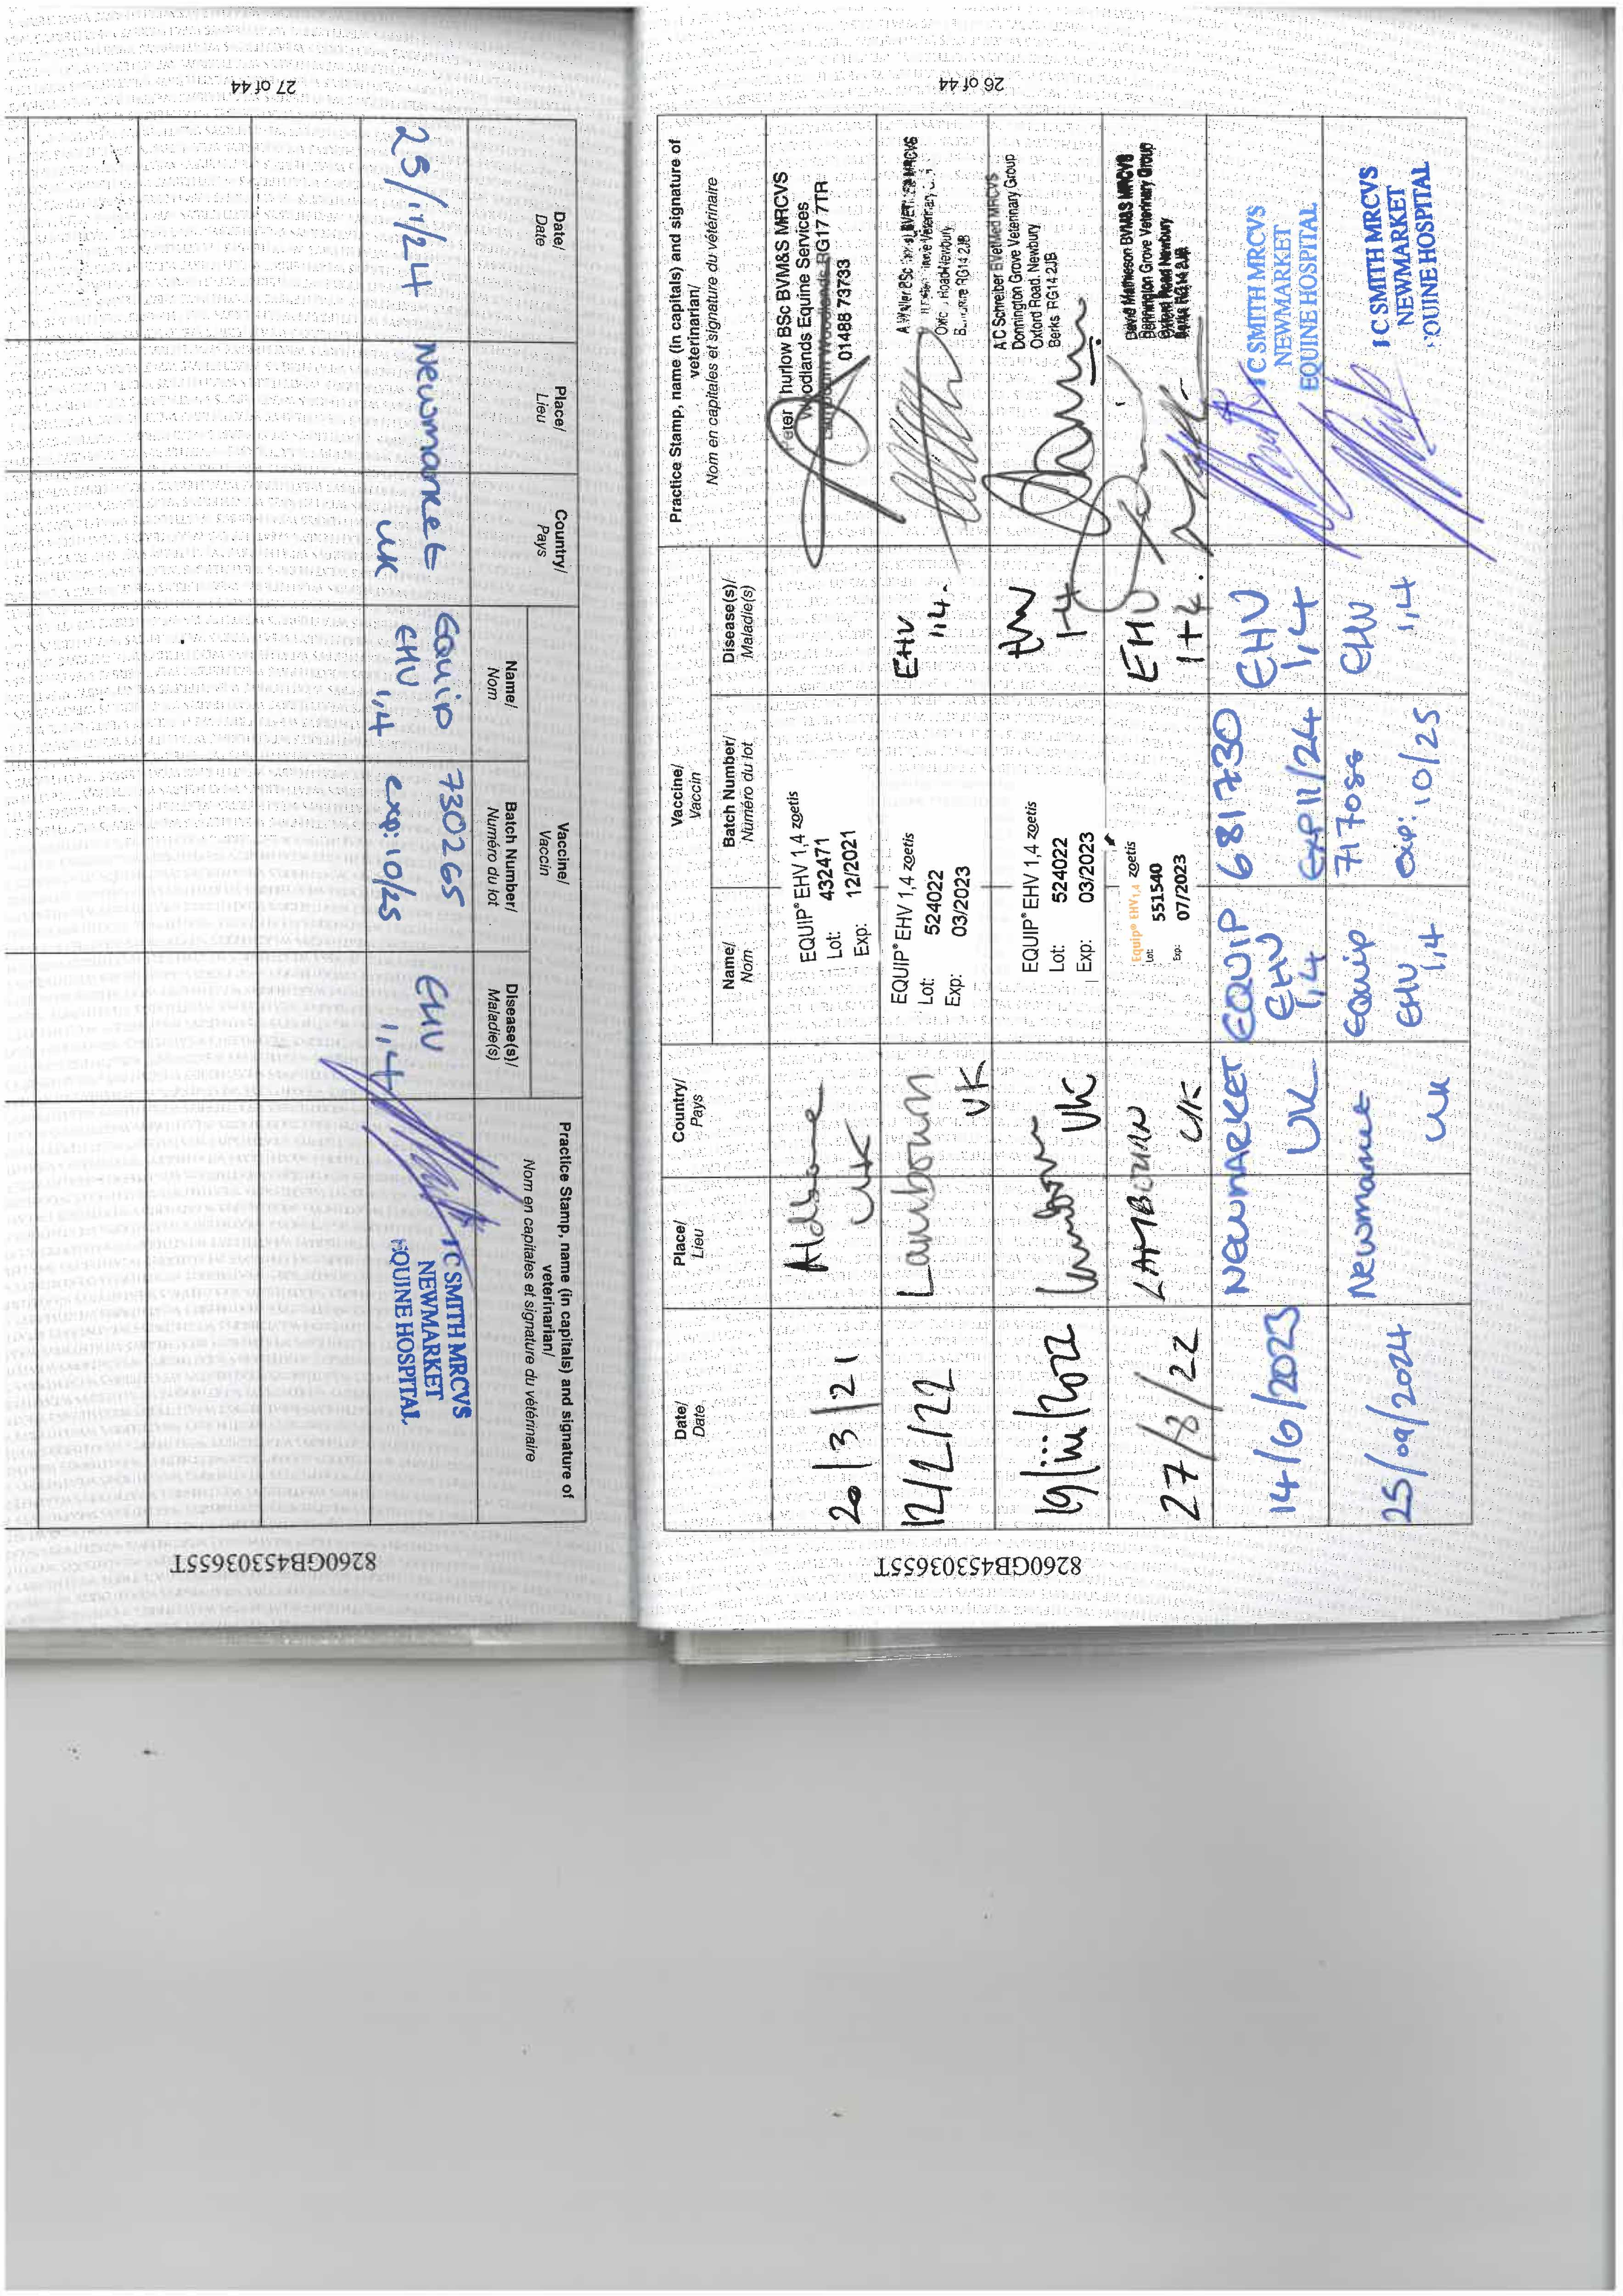 26 of 44
Date/
Date
Place/
Lieu
Country/
Pays
Vaccine/
Vaccin
Name/
Nom
Batch Number/
Numéro du lot
Disease(s)/
Maladie(s)
Practice Stamp, name (in capitals) and signature of
veterinarian/
Nom en capitales et signature du vétérinaire
20/3/21
Aldbourne
UK
EQUIP® EHV 1,4 zoetis
Lot: 432471
Exp: 12/2021
hurlow BSc BVM&S MRCVS
Woodlands Equine Services
RG17 7TR
01488 73733
12/2/22
Lambourn
UK
EQUIP® EHV 1,4 zoetis
Lot: 524022
Exp: 03/2023
EHV
1,4.
Newbury
RG14 2JB
19/iii/2022
Lambourn
UK
EQUIP® EHV 1,4 zoetis
Lot: 524022
Exp: 03/2023
EHV
1+4
A C Schreiber BVetMed MRCVS
Donnington Grove Veterinary Group
Oxford Road. Newbury
Berks RG14 2JB
27/8/22
LAMBOURN
UK
Equip® EHV 1,4 zoetis
Lot: 551540
Exp: 07/2023
EHV
1+4.
David Mathieson BVM&S MRCVS
Donnington Grove Veterinary Group
Oxford Road Newbury
Berks RG14 2JB
14/6/2023
NEWMARKET
UK
EQUIP
EHV
1,4
681730
EXP 11/24
EHV
1,4
JC SMITH MRCVS
NEWMARKET
EQUINE HOSPITAL
25/09/2024
Newmarket
UK
Equip
EHV 1,4
717086
exp: 10/25
EHV
1,4
JC SMITH MRCVS
NEWMARKET
EQUINE HOSPITAL
8260GB45303655T
27 of 44
Date/
Date
Place/
Lieu
Country/
Pays
Vaccine/
Vaccin
Name/
Nom
Batch Number/
Numéro du lot
Disease(s)/
Maladie(s)
Practice Stamp, name (in capitals) and signature of
veterinarian/
Nom en capitales et signature du vétérinaire
25/11/24
Newmarket
UK
Equip
EHV 1,4
730265
exp: 10/25
EHV
1,4
JC SMITH MRCVS
NEWMARKET
EQUINE HOSPITAL
8260GB45303655T